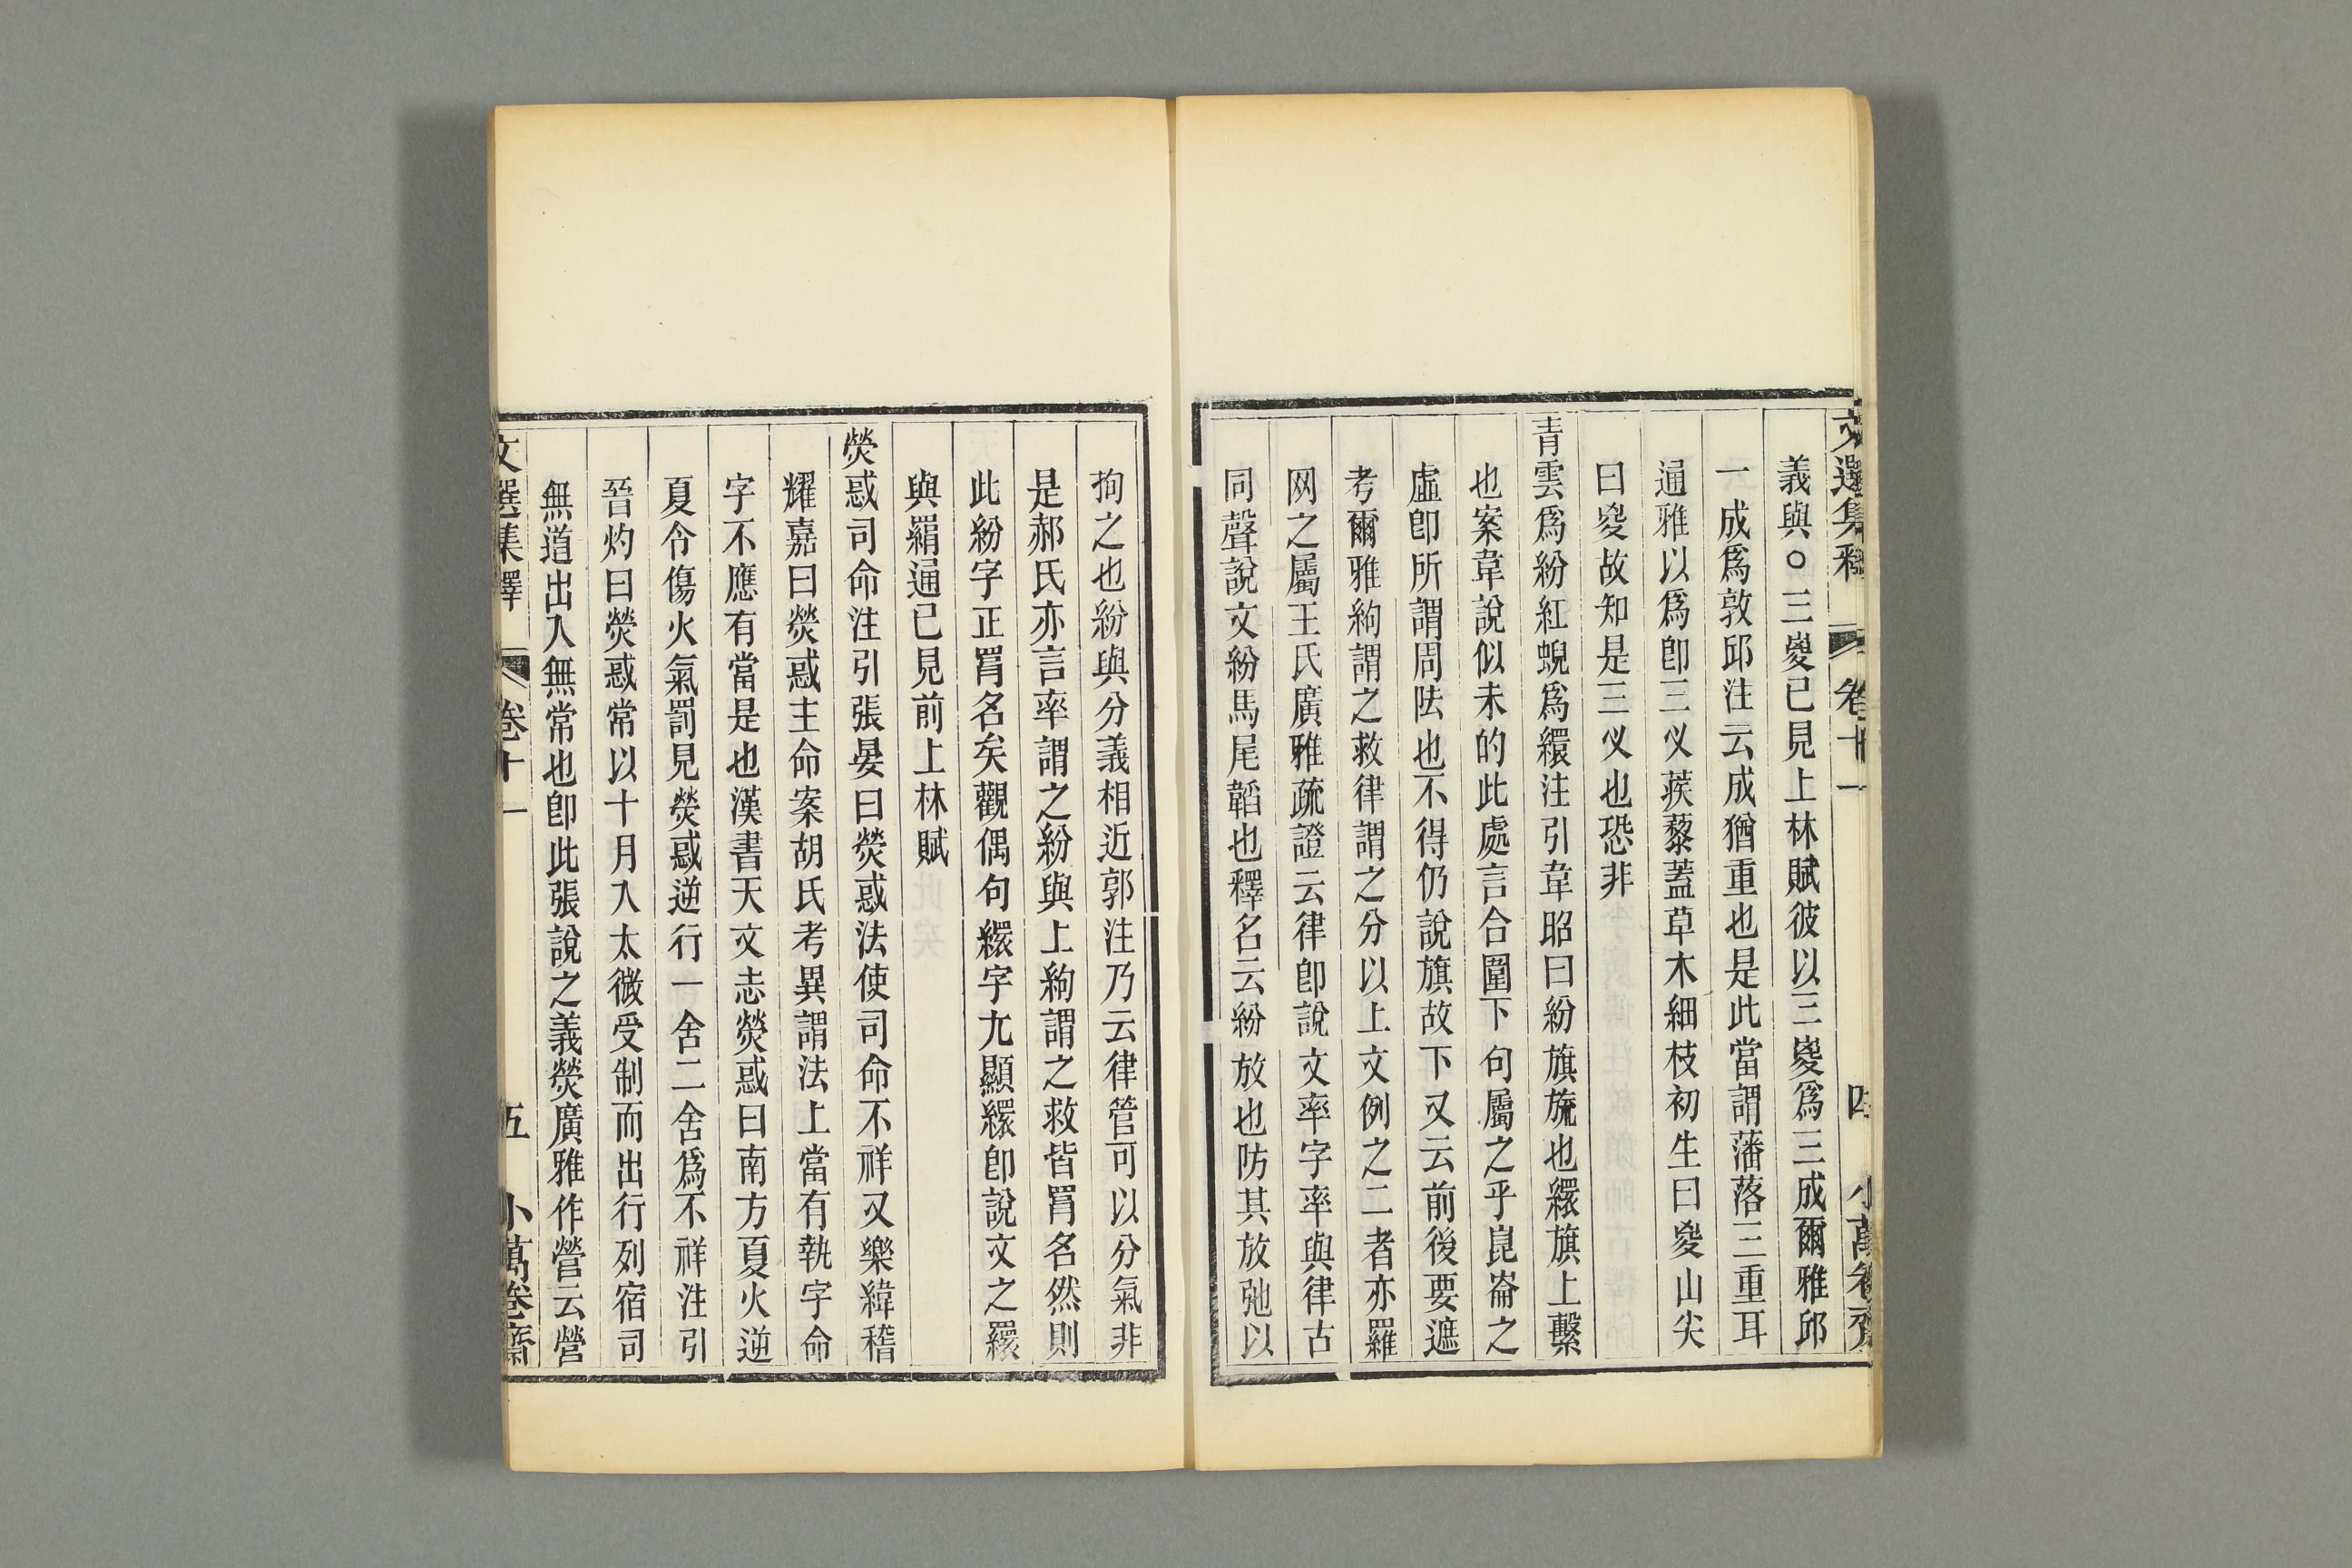 文選集釋 卷十一 四 小萬卷齋
義與○三㚇已見上林賦彼以三㚇爲三成爾雅邱
一成爲敦邱注云成猶重也是此當謂藩落三重耳
通雅以爲卽三㕛蒺藜蓋草木細枝初生曰㚇山尖
曰㚇故知是三㕛也恐非
青雲爲紛紅蜺爲繯注引韋昭曰紛旗旒也繯旗上繫
也案韋說似未的此處言合圍下句屬之乎崑崙之
虛卽所謂周阹也不得仍說旗故下又云前後要遮
考爾雅絇謂之救律謂之分以上文例之二者亦羅
网之屬王氏廣雅疏證云律卽說文率字率與律古
同聲說文紛馬尾韜也釋名云紛放也防其放弛以
拘之也紛與分義相近郭注乃云律管可以分氣非
是郝氏亦言率謂之紛與上絇謂之救皆罥名然則
此紛字正罥名矣觀偶句繯字尢顯繯卽說文之䍡
與羂通已見前上林賦
熒惑司命注引張晏曰熒惑法使司命不祥又樂緯稽
耀嘉曰熒惑主命案胡氏考異謂法上當有執字命
字不應有當是也漢書天文志熒惑曰南方夏火逆
夏令傷火氣罰見熒惑逆行一舍二舍爲不祥注引
晉灼曰熒惑常以十月入太微受制而出行列宿司
無道出入無常也卽此張說之義熒廣雅作營云營
文選集釋 卷十一 五 小萬卷齋